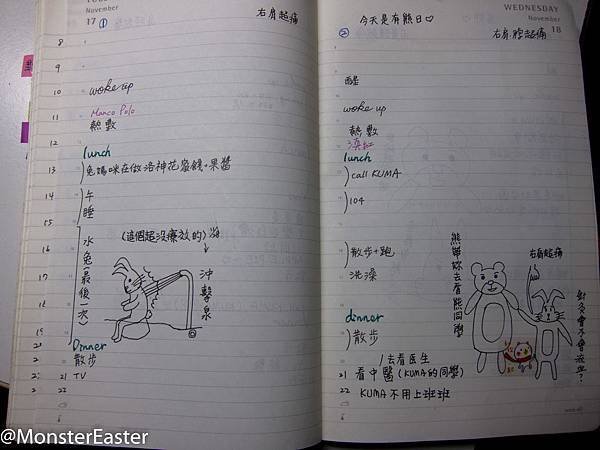 November
17 ①
右肩超痛
8
9
10 woke up
11 Marco Polo
熱敷
12
lunch
13 兔媽咪在做洛神花蜜餞+果醬
14 午睡
15
(這個超沒療效的)
16 水兔(最後一次)
沖擊泉
17
18
19
Dinner
散步
21 TV
22
WEDNESDAY
November
18
② 今天是有熊日♡
右肩膀超痛
醒
woke up
熱敷
滇紅
lunch
call KUMA
104
散步+跑
洗澡
熊帶妳去看熊同學
右肩超痛
針灸會不會流血?
dinner
散步
去看医生
21 看中醫(KUMA的同學)
22 KUMA不用上班班
@MonsterEaster